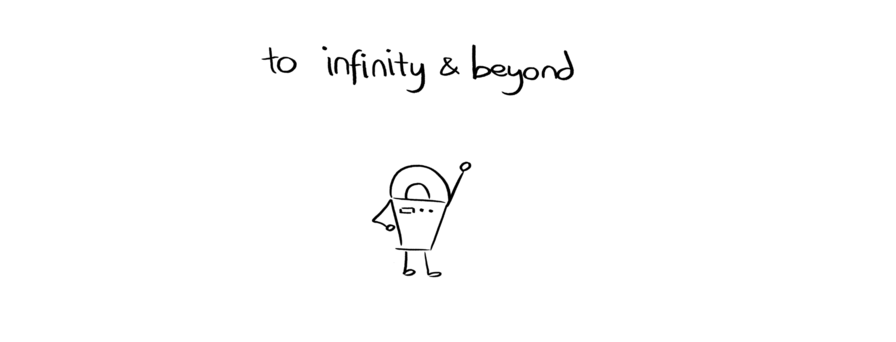 to infinity & beyond